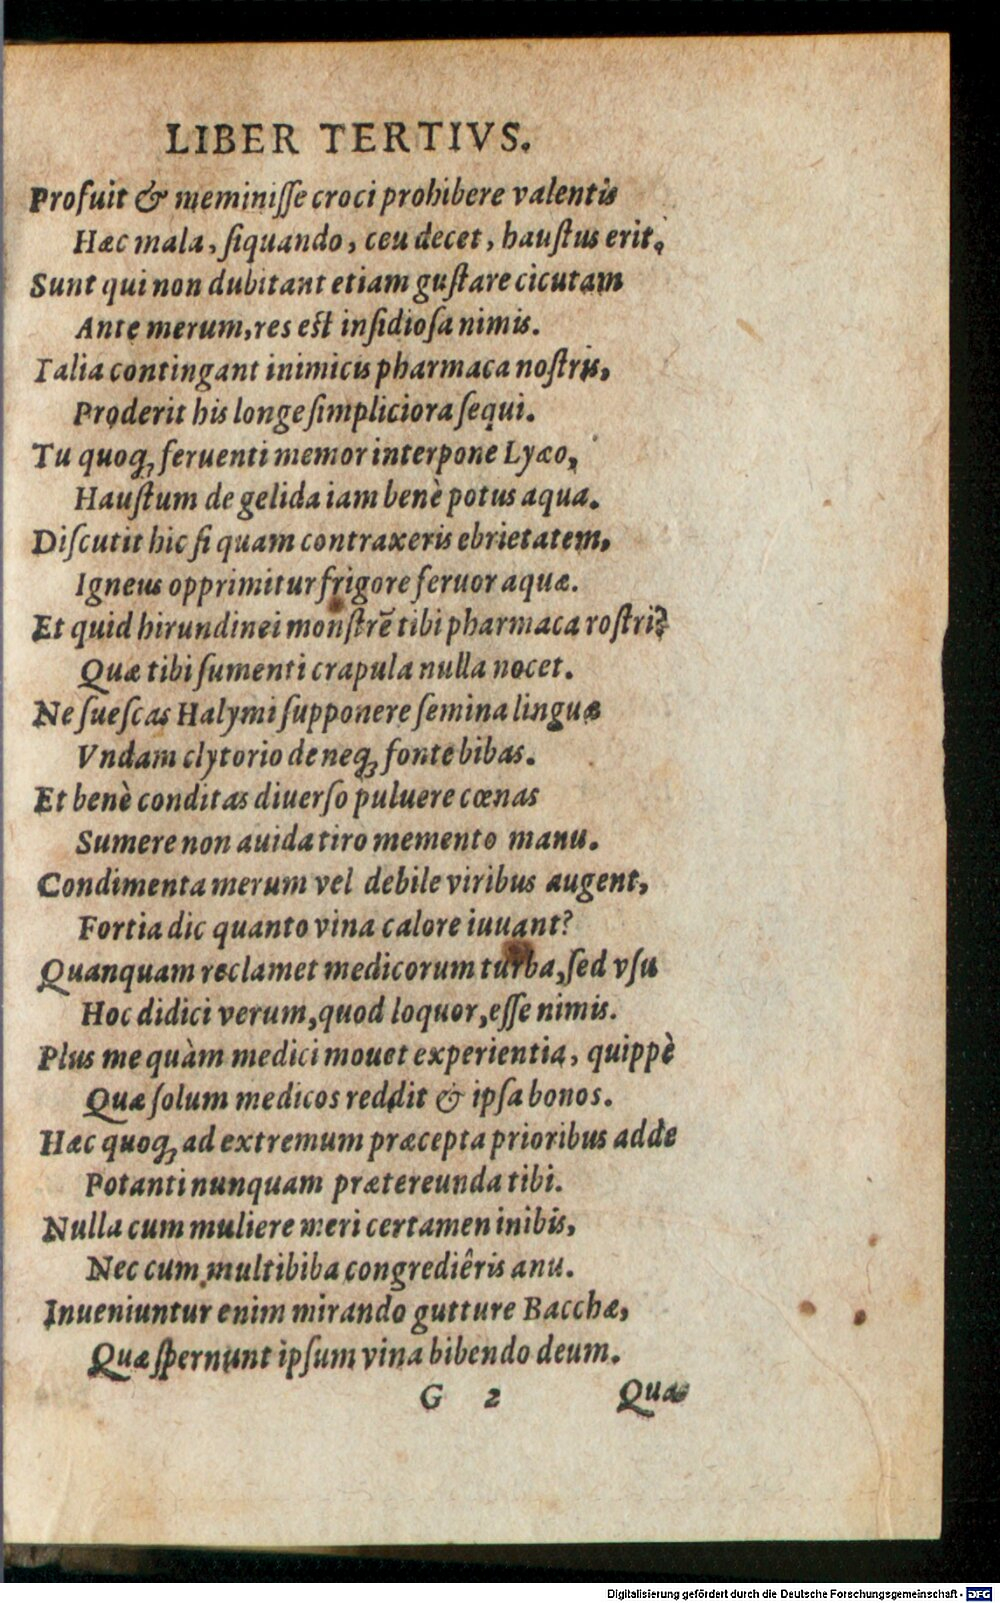 LIBER TERTIVS.
Profuit & meminiſſe croci prohibere valentis
Hæc mala, ſiquando, ceu decet, hauſtus erit.
Sunt qui non dubitant etiam guſtare cicutam
Ante merum, res eſt inſidioſa nimis.
Talia contingant inimicis pharmaca noſtris,
Proderit his longe ſimpliciora ſequi.
Tu quoq; feruenti memor interpone Lyæo,
Hauſtum de gelida iam benè potus aqua.
Diſcutit hic ſi quam contraxeris ebrietatem,
Igneus opprimitur frigore feruor aquæ.
Et quid hirundinei monſtrē tibi pharmaca roſtri?
Quæ tibi ſumenti crapula nulla nocet.
Ne ſueſcas Halymi ſupponere ſemina linguæ
Vndam clytorio de neq; fonte bibas.
Et benè conditas diuerſo puluere cœnas
Sumere non auida tiro memento manu.
Condimenta merum vel debile viribus augent,
Fortia dic quanto vina calore iuuant?
Quanquam reclamet medicorum turba, ſed vſu
Hoc didici verum, quod loquor, eſſe nimis.
Plus me quàm medici mouet experientia, quippè
Quæ ſolum medicos reddit & ipſa bonos.
Hæc quoq; ad extremum præcepta prioribus adde
Potanti nunquam prætereunda tibi.
Nulla cum muliere meri certamen inibis,
Nec cum multibiba congrediêris anu.
Inueniuntur enim mirando gutture Bacchæ,
Quæ ſpernunt ipſum vina bibendo deum.
G 2 Quæ
Digitalisierung gefördert durch die Deutsche Forschungsgemeinschaft - DFG